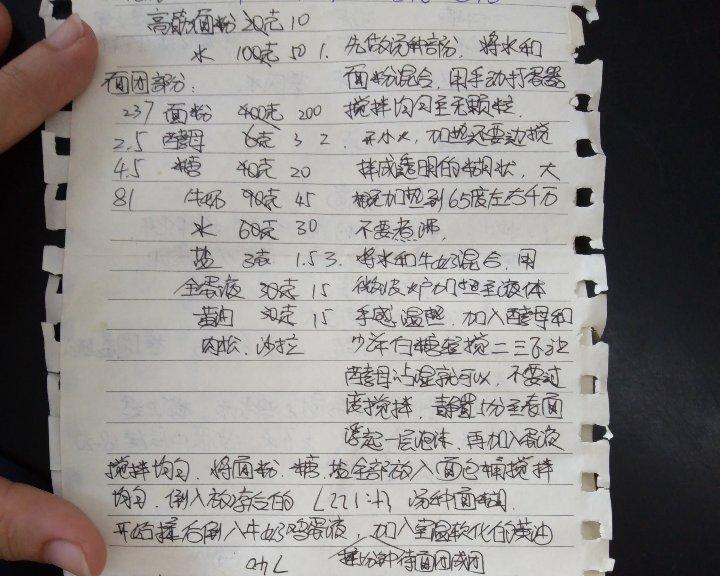 高筋面粉 20克 10
水 100克 50 1. 先做汤种部分，将水和
面团部分： 面粉混合，用手动打蛋器
237 面粉 400克 200 搅拌均匀至无颗粒.
2.5 酵母 6克 3 2. 开小火，加热还要边搅
4.5 糖 40克 20 拌成透明的糊状，大
81 牛奶 90克 45 概加热到65度左右千万
水 60克 30 不要煮沸,
盐 3克 1.5 3. 将水和牛奶混合，用
全蛋液 30克 15 微波炉加热至液体
黄油 30克 15 手感温热，加入酵母和
肉松、沙拉 少许白糖轻搅二三下让
酵母沾湿就可以，不要过
度搅拌，静置 分至表面
浮起一层泡沫，再加入蛋液
搅拌均匀，将面粉、糖、盐全部放入面包桶搅拌
均匀，倒入放凉后的 汤种面糊，
开始揉后倒入牛奶鸡蛋液，加入室温软化的黄油
分钟待面团成团